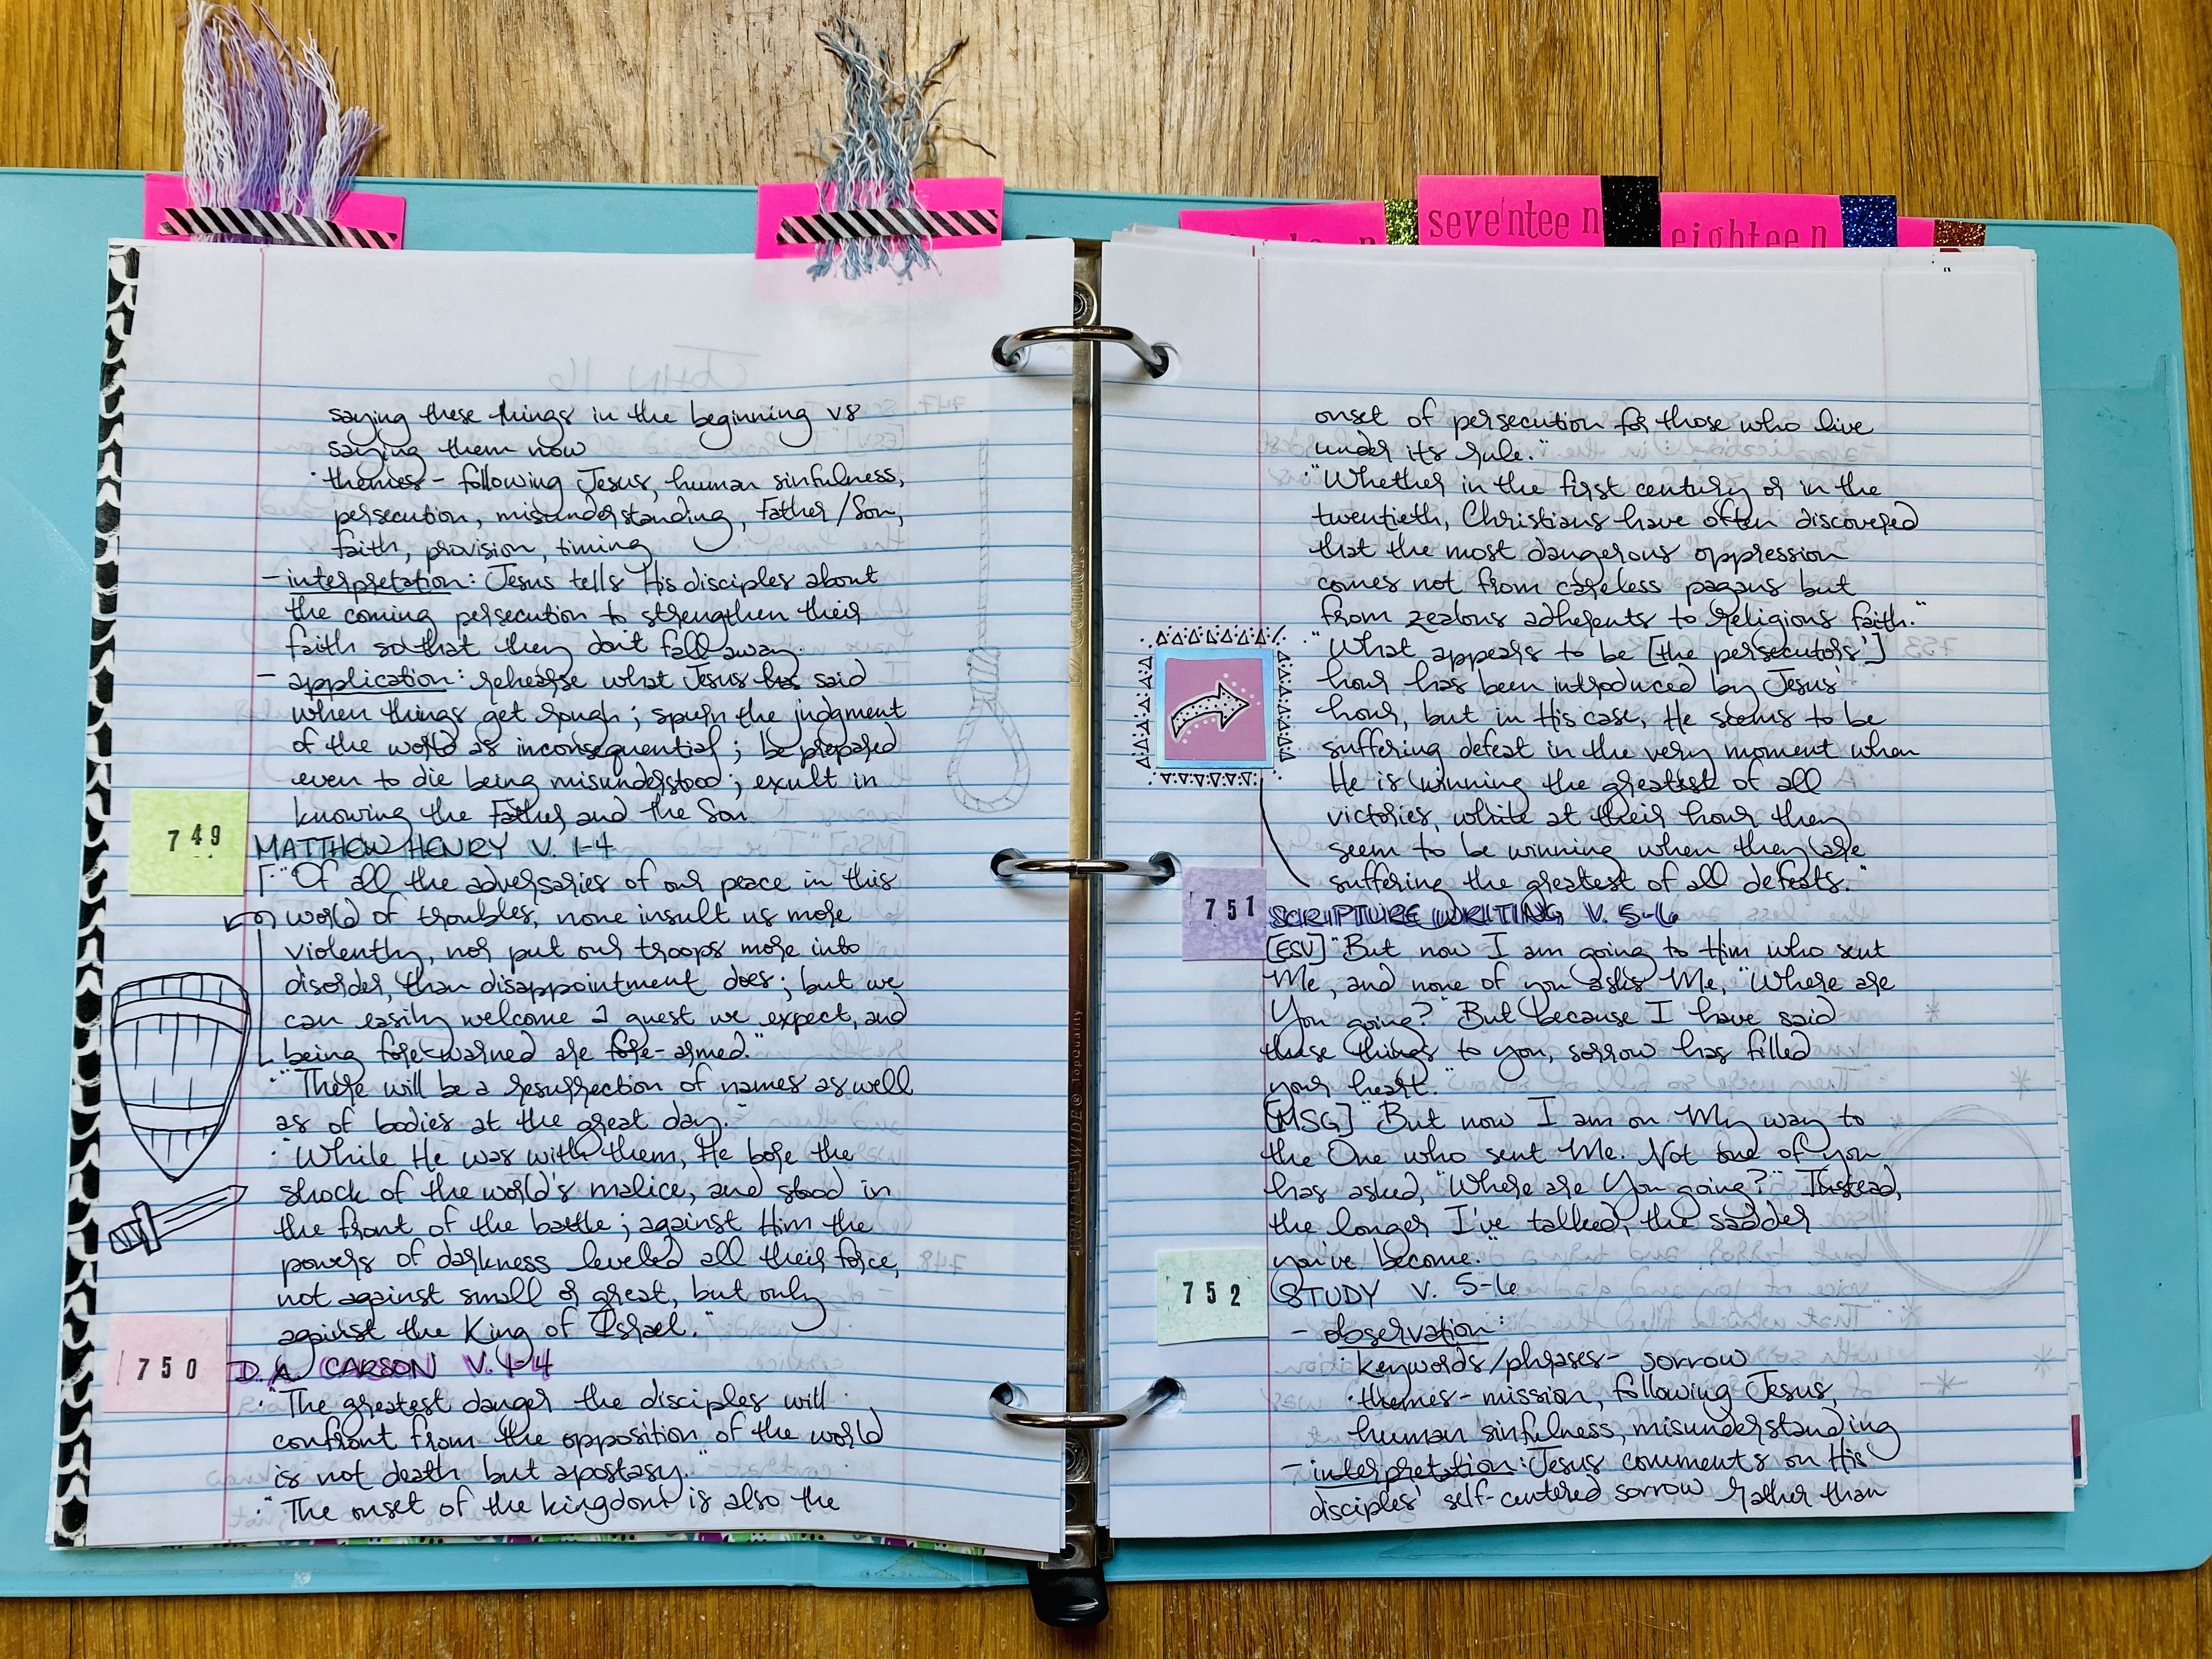 seventeen
eighteen
saying these things in the beginning vs
saying them now
· themes - following Jesus, human sinfulness,
persecution, misunderstanding, Father/Son,
faith, provision, timing
- interpretation: Jesus tells His disciples about
the coming persecution to strengthen their
faith so that they don't fall away.
- application: rehearse what Jesus has said
when things get rough; spurn the judgment
of the world as inconsequential; be prepared
even to die being misunderstood; exult in
knowing the Father and the Son
749
MATTHEW HENRY V. 1-4
· "Of all the adversaries of our peace in this
world of troubles, none insult us more
violently, nor put our troops more into
disorder, than disappointment does; but we
can easily welcome a guest we expect, and
being fore-warned are fore-armed."
· "There will be a resurrection of names as well
as of bodies at the great day."
· "While He was with them, He bore the
shock of the world's malice, and stood in
the front of the battle; against Him the
powers of darkness leveled all their force,
not against small or great, but only
against the King of Israel."
750
D.A. CARSON V. 1-4
· "The greatest danger the disciples will
confront from the opposition of the world
is not death but apostasy."
· "The onset of the kingdom is also the
onset of persecution for those who live
under its rule."
· "Whether in the first century or in the
twentieth, Christians have often discovered
that the most dangerous oppression
comes not from careless pagans but
from zealous adherents to religious faith."
· "What appears to be [the persecutors']
hour has been introduced by Jesus'
hour, but in His case, He seems to be
suffering defeat in the very moment when
He is winning the greatest of all
victories, while at their hour they
seem to be winning when they are
suffering the greatest of all defeats."
751
SCRIPTURE WRITING V. 5-6
[ESV] "But now I am going to Him who sent
Me, and none of you asks Me, "Where are
You going?" But because I have said
these things to you, sorrow has filled
your heart."
[MSG] "But now I am on My way to
the One who sent Me. Not one of you
has asked, "Where are You going?" Instead,
the longer I've talked, the sadder
you've become."
752
STUDY V. 5-6
- observation:
· keywords/phrases - sorrow
· themes - mission, following Jesus,
human sinfulness, misunderstanding
- interpretation: Jesus comments on His
disciples' self-centered sorrow rather than